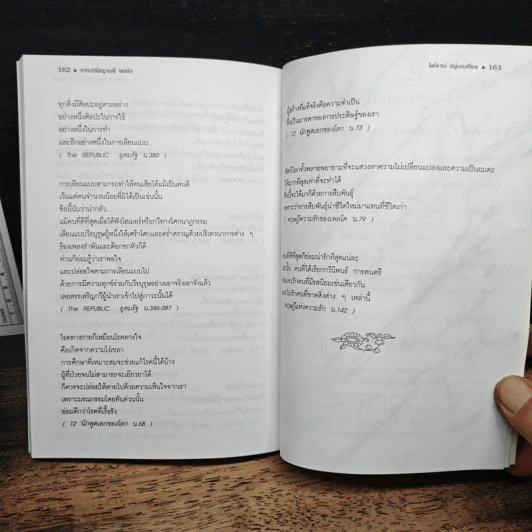 162 ● วาทะปรัชญาเมธี เพลโต
ทุกสิ่งมีศิลปะอยู่สามอย่าง
อย่างหนึ่งศิลปะในการใช้
อย่างหนึ่งในการทำ
และอีกอย่างหนึ่งในการเลียนแบบ
( The REPUBLIC อุตมรัฐ น.380 )
การเลียนแบบสามารถทำให้คนเสียได้แม้เป็นคนดี
เว้นแต่คนจำนวนน้อยที่มิได้เป็นเช่นนั้น
ข้อนี้นับว่าน่ากลัว...
แม้คนดีที่สุดเมื่อได้ฟังโฮเมอร์หรือกวีทางโศกนาฏกรรม
เลียนแบบวีรบุรุษผู้หนึ่งให้เศร้าโศกและคร่ำครวญด้วยปริเทวนาการต่าง ๆ
ร้องเพลงรำพันและตีอกชกหัวก็ดี
ท่านก็ย่อมรู้ว่าเราพอใจ
และปล่อยใจตามการเลียนแบบไป
ด้วยการมีความทุกข์ร่วมกับวีรบุรุษอย่างเอาจริงเอาจังแล้ว
เลยสรรเสริญกวีผู้นำเราเข้าไปสู่ภาวะนั้นได้
( The REPUBLIC อุตมรัฐ น.386-387 )
โรคทางกายก็เหมือนโรคทางใจ
คือเกิดจากความโง่เขลา
การศึกษาที่เหมาะสมจะช่วยแก้โรคนี้ได้บ้าง
ผู้ที่ป่วยจนไม่สามารถจะเยียวยาได้
ก็ควรจะปล่อยให้ตายไปด้วยความเห็นใจจากเรา
เพราะมรณกรรมโดยทันด่วนนั้น
ย่อมดีกว่าโรคที่เรื้อรัง
( 12 นักพูดเอกของโลก น.68 )
ไพโรจน์ อยู่มณเฑียร ● 163
ผู้สร้างที่แท้จริงคือความจำเป็น
ซึ่งเป็นมารดาของการประดิษฐ์ของเรา
( 12 นักพูดเอกของโลก น.73 )
สัตว์โลกทั้งหลายพยายามที่จะแสวงหาความไม่เปลี่ยนแปลงและความเป็นอมตะ
ให้มากที่สุดเท่าที่จะทำได้
สิ่งนี้จะได้มาก็ด้วยการสืบพันธุ์
เพราะว่าการสืบพันธุ์นำชีวิตใหม่มาแทนที่ชีวิตเก่า
( ทฤษฎีความรักของเพลโต น.79 )
คนดีที่สุดก็ย่อมน่ารักที่สุดแปละ
ฉะนั้น คนที่ได้เรียกกวีนิพนธ์ การดนตรี
จะรักคนที่มีรสนิยมเช่นเดียวกัน
จะไม่รักคนที่ขาดสิ่งต่าง ๆ เหล่านี้
ทฤษฎีแห่งความรัก น.142 )